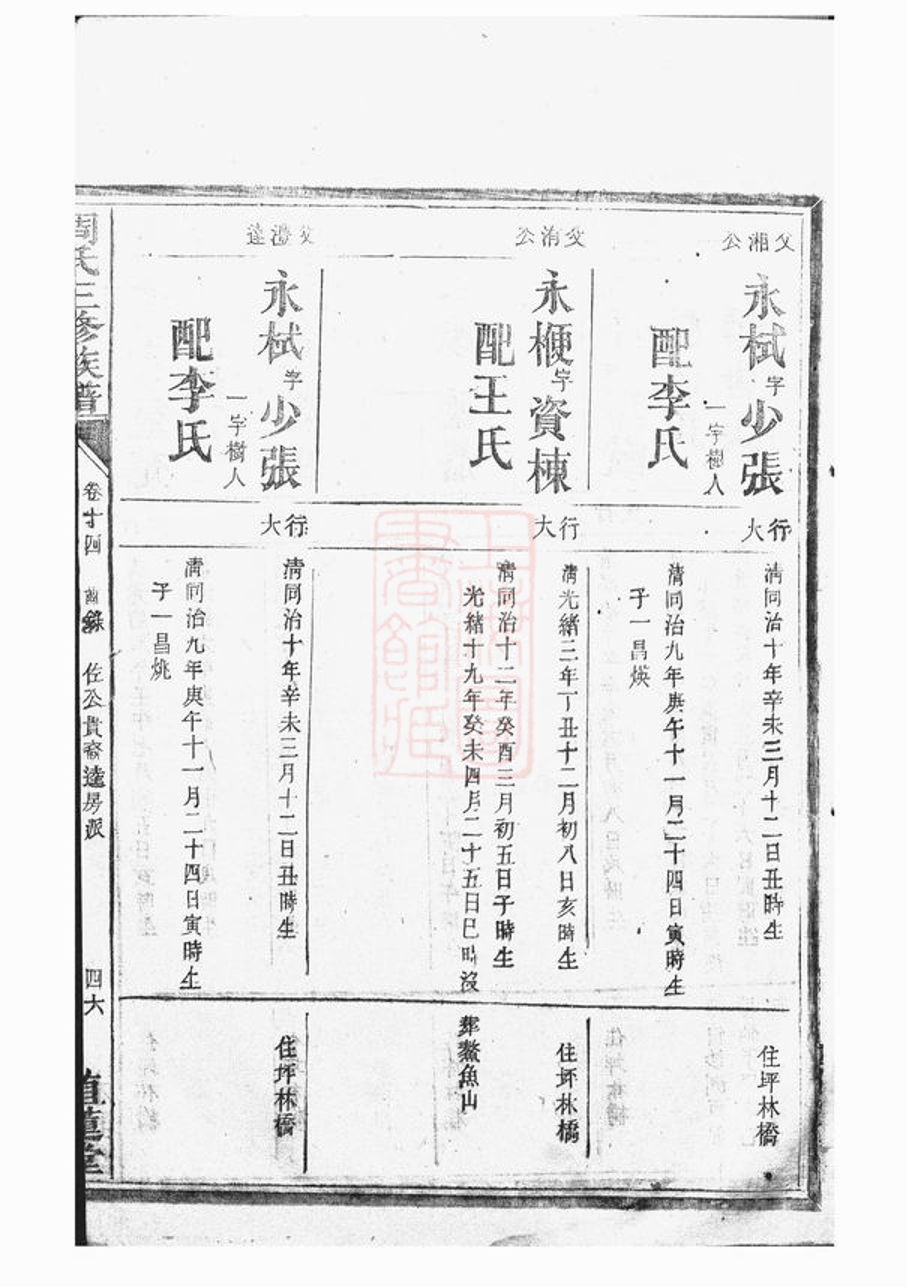 父湘公
永栻字少張
一字樹人
配李氏
行大
清同治十年辛未三月十二日丑時生
清同治九年庚午十一月二十四日寅時生
子一昌煐
住坪林橋
父洧公
永楩字資棟
配王氏
行大
清光緒三年丁丑十二月初八日亥時生
清同治十二年癸酉三月初五日子時生
光緒十九年癸未四月二十五日巳時沒
住坪林橋
葬鰲魚山
父澧逵
永栻字少張
一字樹人
配李氏
行大
清同治十年辛未三月十二日丑時生
清同治九年庚午十一月二十四日寅時生
子一昌烑
住坪林橋
周氏三修族譜
卷十四
齒錄
佐公貴裔逵房派
四六
上海圖書館藏